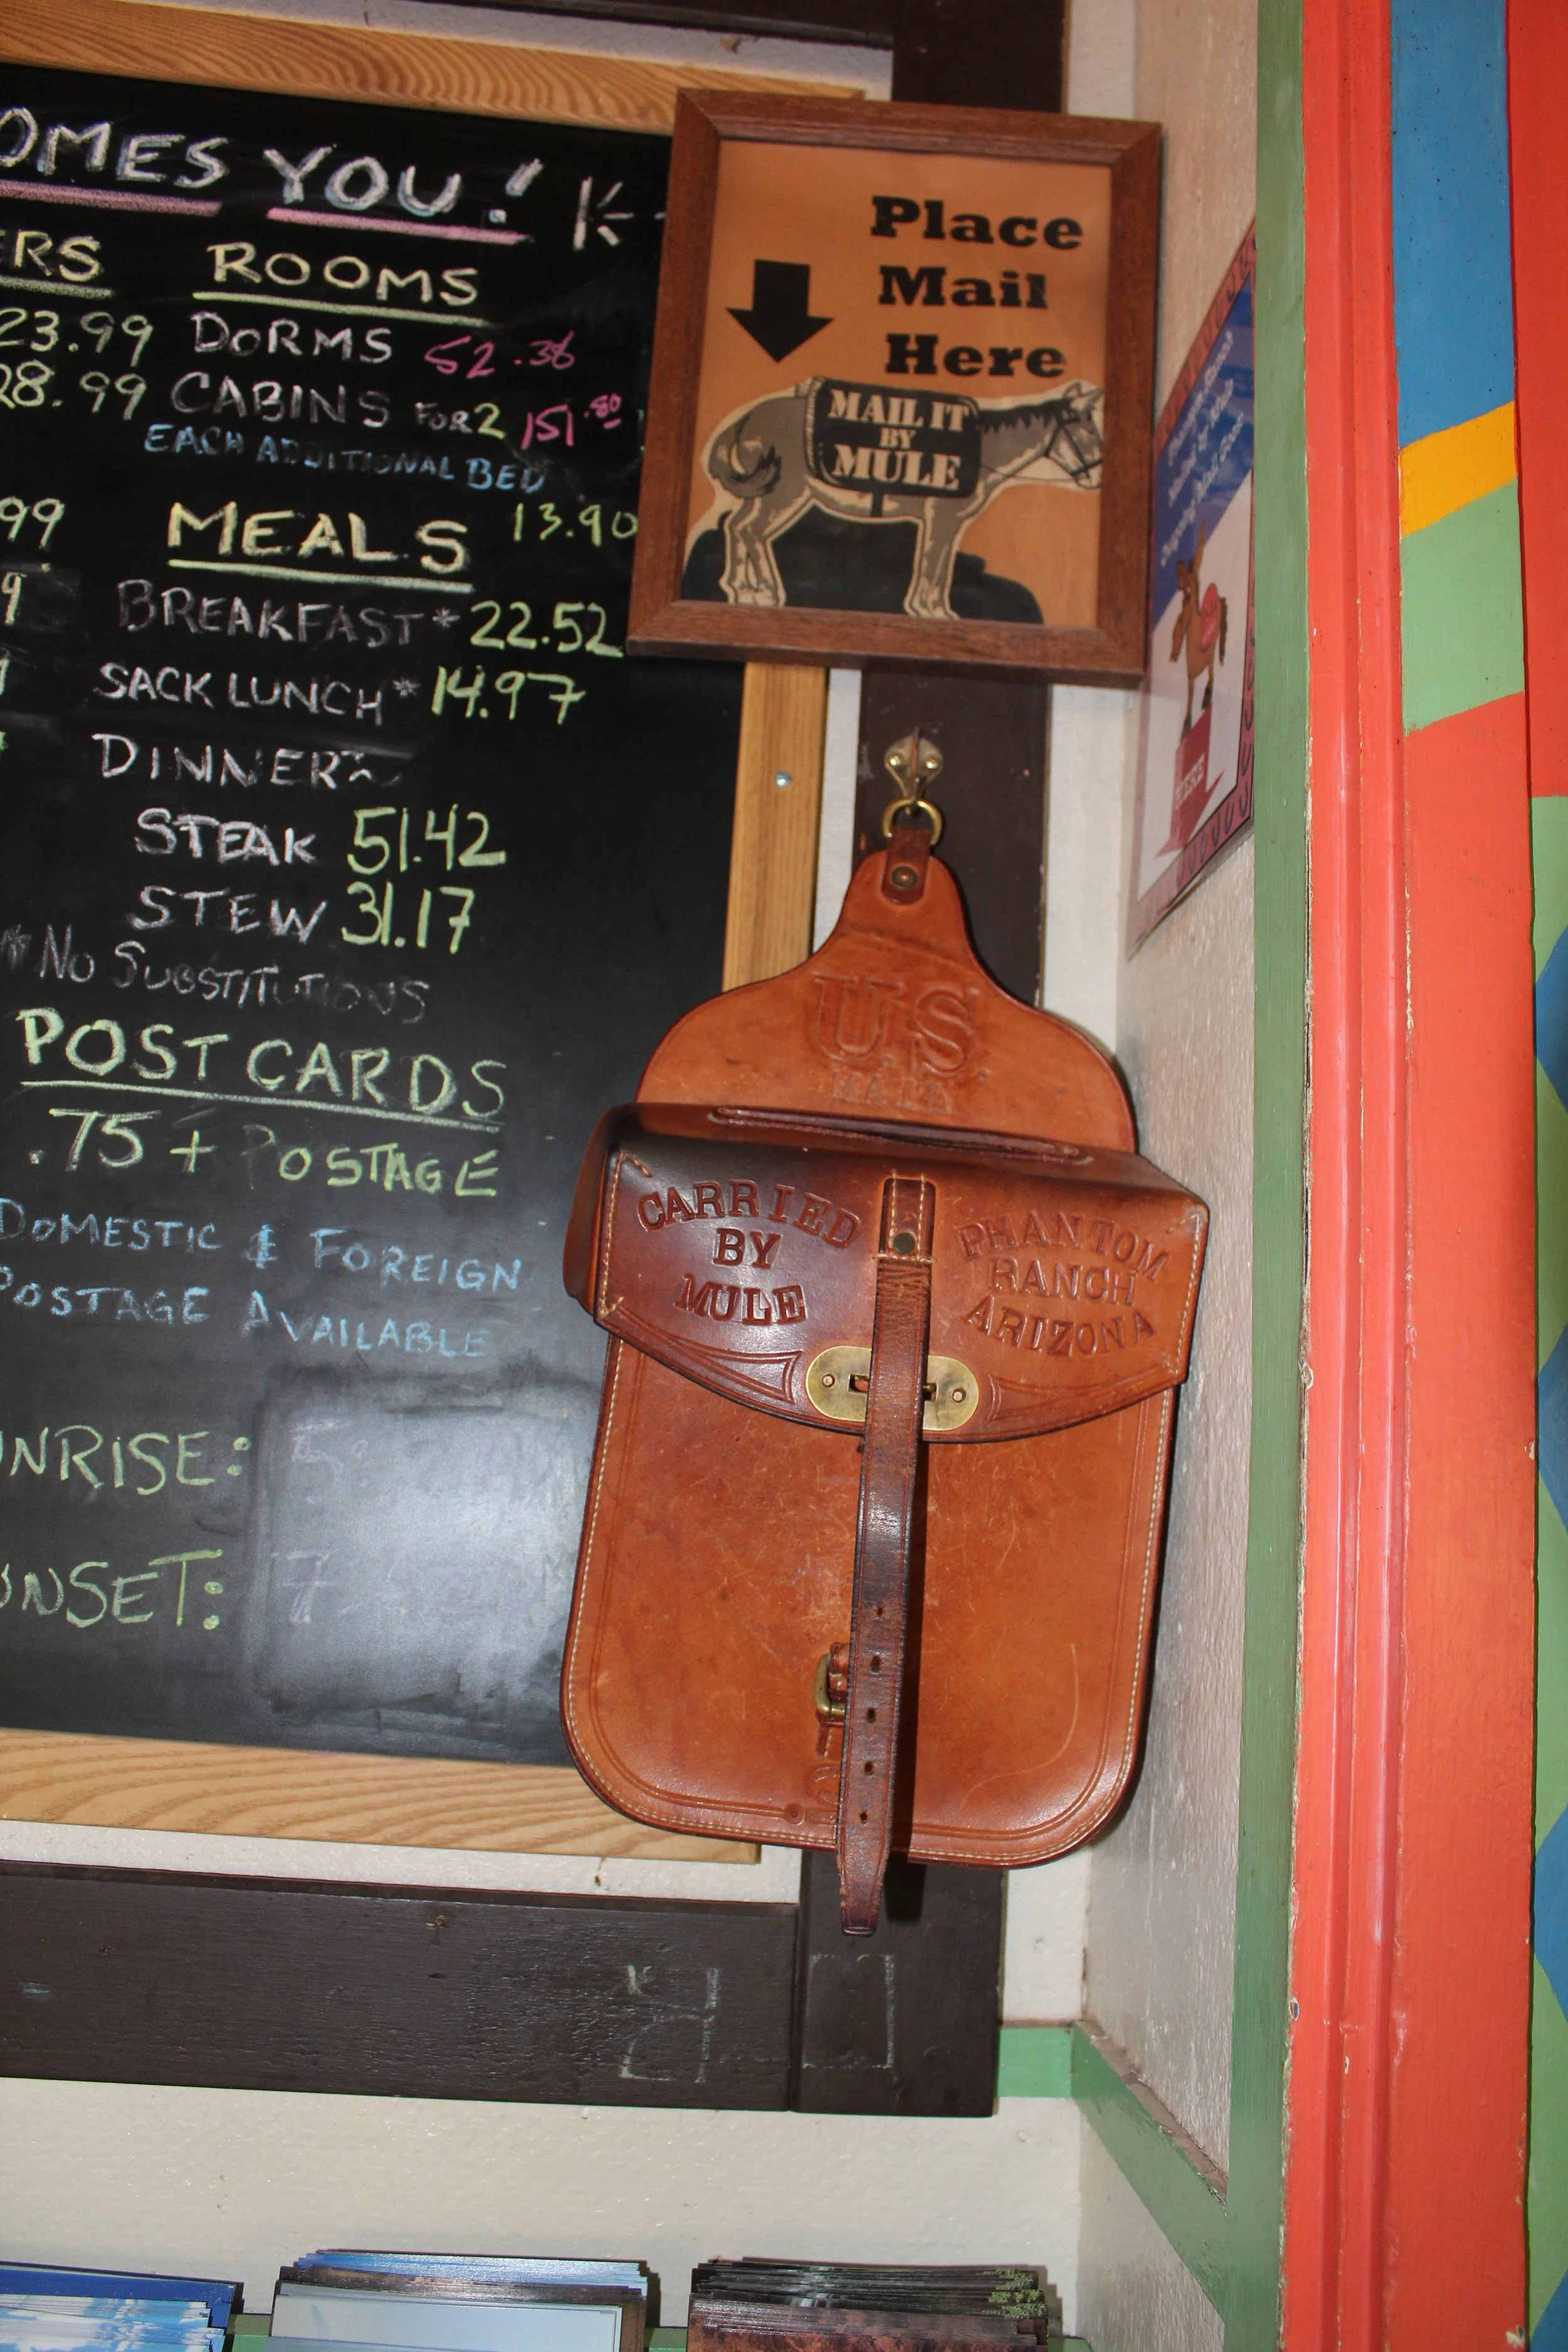 OMES YOU!
ERS ROOMS
23.99 DORMS 52.38
28.99 CABINS FOR 2 151.80
EACH ADDITIONAL BED
13.90
99 MEALS
9 BREAKFAST* 22.52
SACK LUNCH* 14.97
DINNER~
STEAK 51.42
STEW 31.17
*NO SUBSTITUTIONS
POST CARDS
.75 + POSTAGE
DOMESTIC & FOREIGN
POSTAGE AVAILABLE
UNRISE: 5:
UNSET: 7
Place
Mail
Here
MAIL IT
BY
MULE
HERE
U.S.
MAIL
CARRIED
BY
MULE
PHANTOM
RANCH
ARIZONA